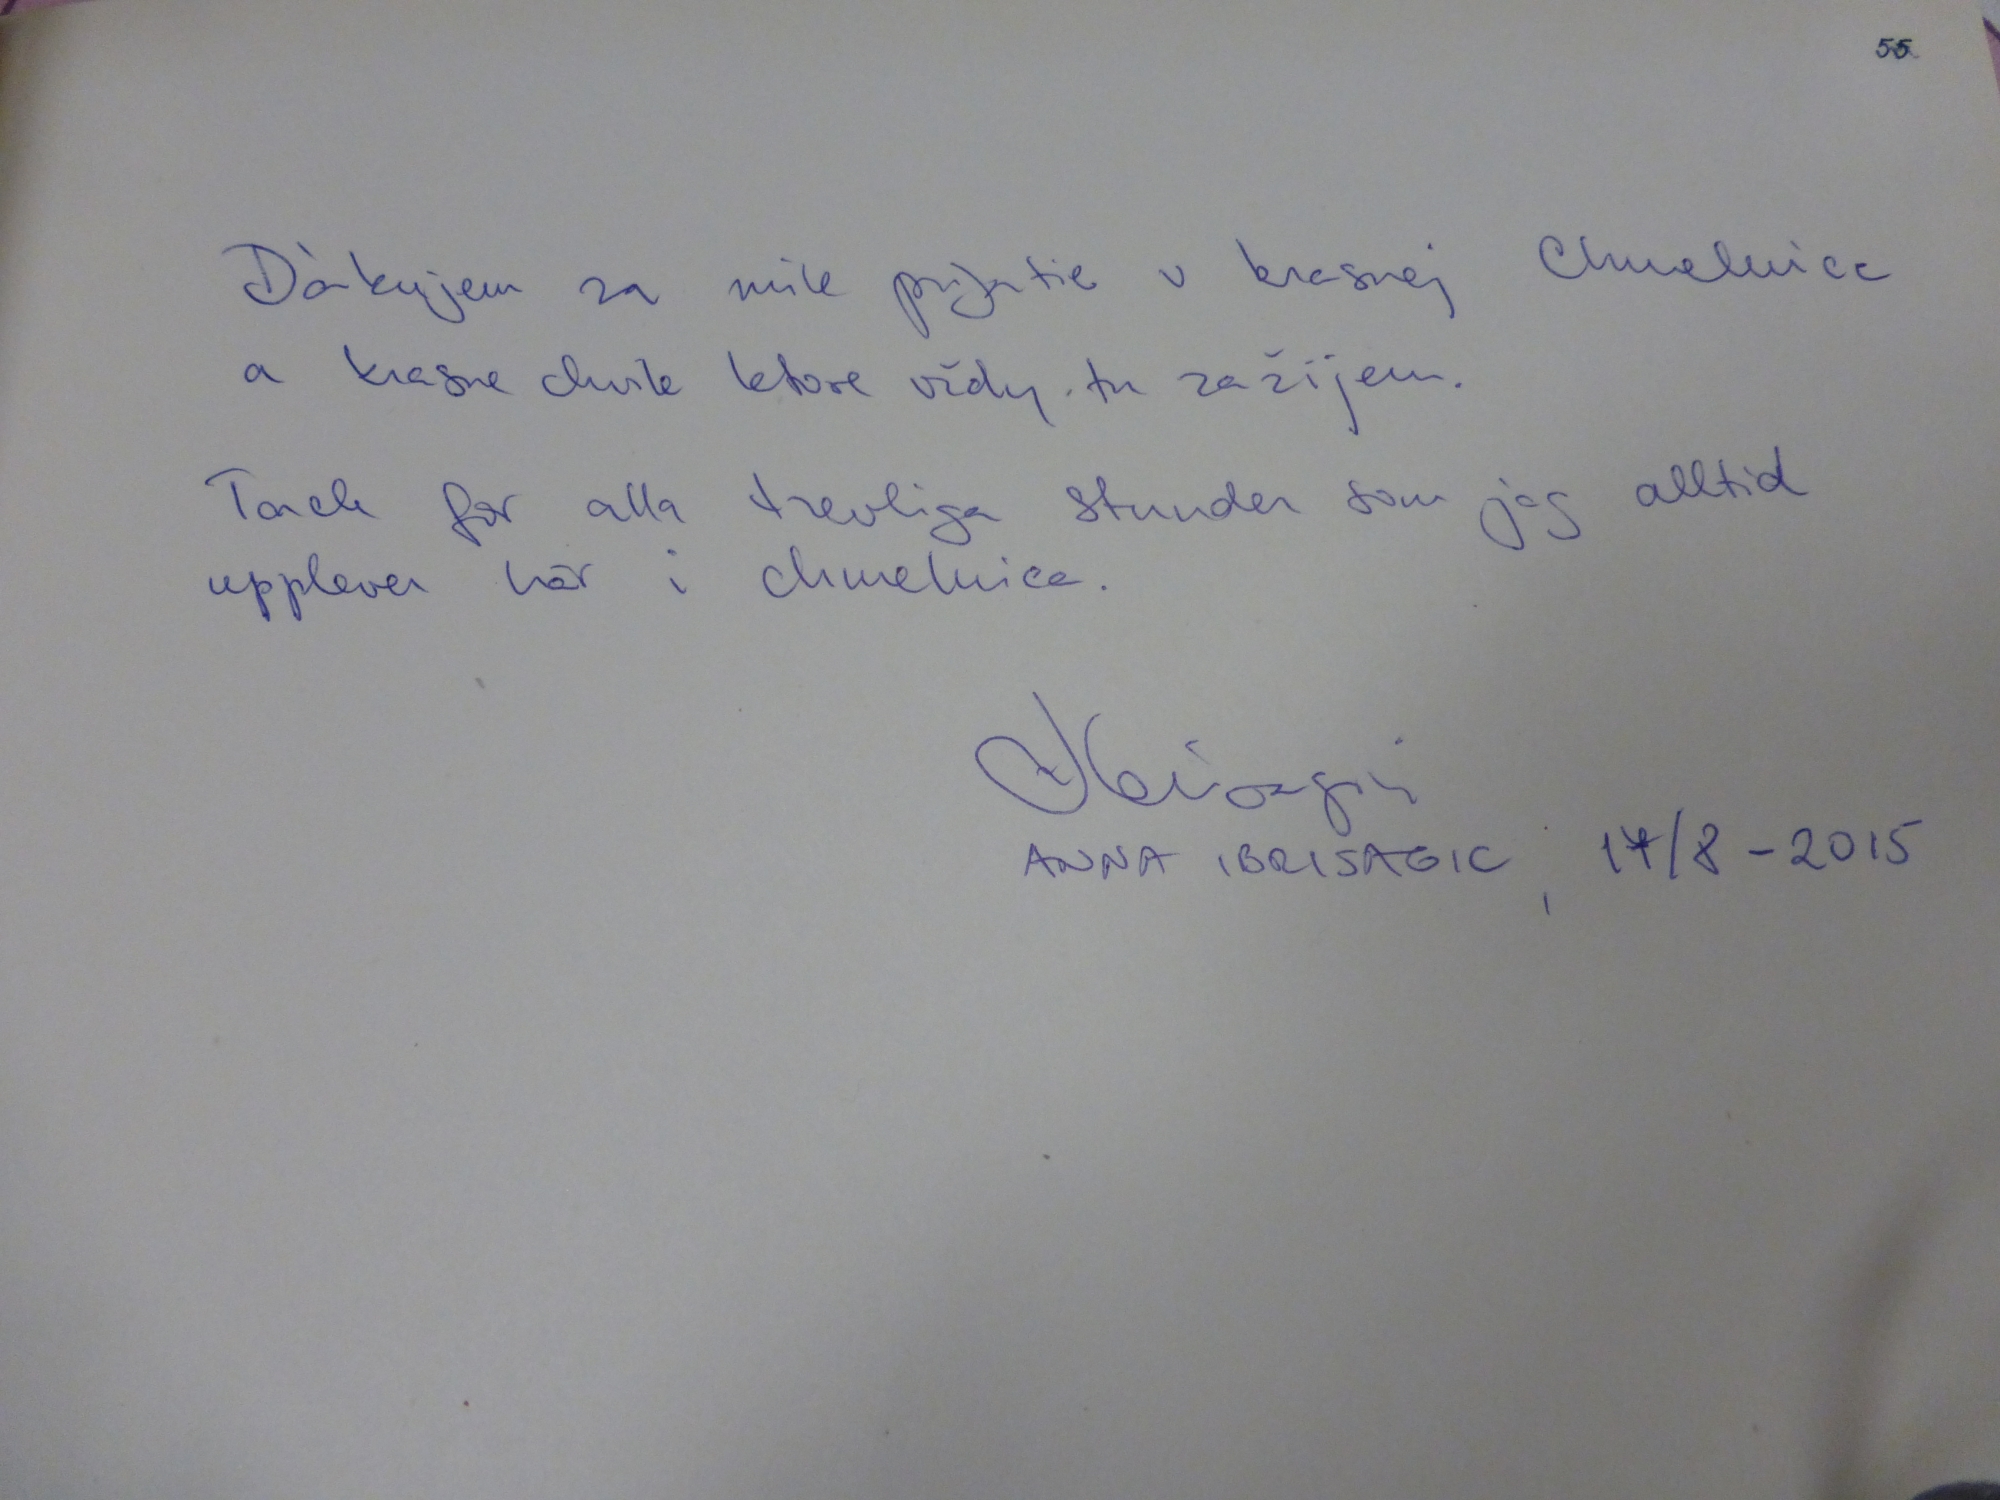 55.
Dàkujem za mile prijatie v krasnej Chmelnice
a krasne chvile ktore vždy tu zažijem.
Tack för alla trevliga stunder som jag alltid
upplever här i Chmelnica.
ANNA IBRISAGIC, 17/8-2015